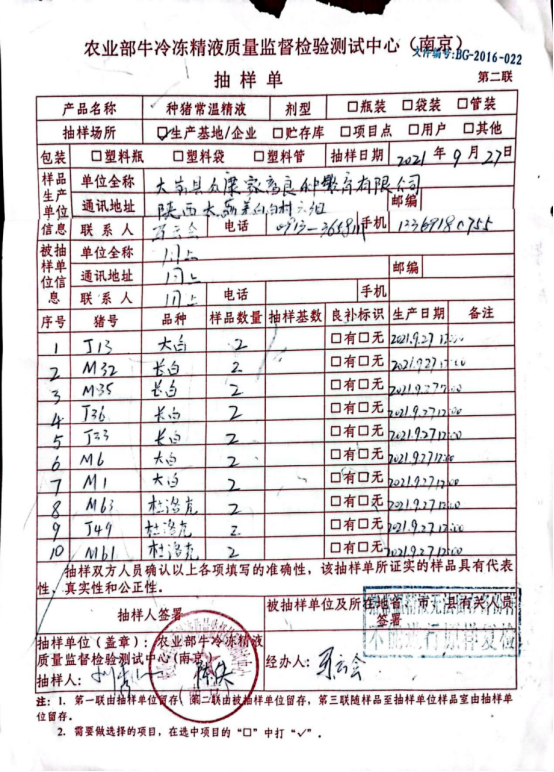 农业部牛冷冻精液质量监督检验测试中心（南京）
文件编号:BG-2016-022
抽样单
第二联
产品名称 种猪常温精液 剂型 □瓶装 □袋装 □管装
抽样场所 ☑生产基地/企业 □贮存库 □项目点 □用户 □其他
包装 □塑料瓶 □塑料袋 □塑料管 抽样日期 2021年9月27日
样品生产单位信息 单位全称 有限公司
通讯地址 陕西大荔 邮编
联系人 电话 0913- 手机
被抽样单位信息 单位全称 同上
通讯地址 同上 邮编
联系人 同上 电话 手机
序号 猪号 品种 样品数量 抽样基数 良补标识 生产日期 备注
1 J13 大白 2 □有□无 2021.9.27
2 M32 长白 2 □有□无 2021.9.27
3 M35 长白 2 □有□无 2021.9.27
4 J36 长白 2 □有□无 2021.9.27
5 J33 长白 2 □有□无 2021.9.27
6 M6 大白 2 □有□无 2021.9.27
7 M1 大白 2 □有□无 2021.9.27
8 M63 杜洛克 2 □有□无 2021.9.27
9 J49 杜洛克 2 □有□无 2021.9.27
10 M61 杜洛克 2 □有□无 2021.9.27
抽样双方人员确认以上各项填写的准确性，该抽样单所证实的样品具有代表
性、真实性和公正性。
抽样人签署
被抽样单位及所在地省 市 县有关人员
签署
不能进行原样复检
抽样单位（盖章）：农业部牛冷冻精液
质量监督检验测试中心（南京）
抽样人：
经办人：
注：1. 第一联由抽样单位留存，第二联由被抽样单位留存，第三联随样品至抽样单位样品室由抽样单
位留存。
2. 需要做选择的项目，在选中项目的“□”中打“√”。